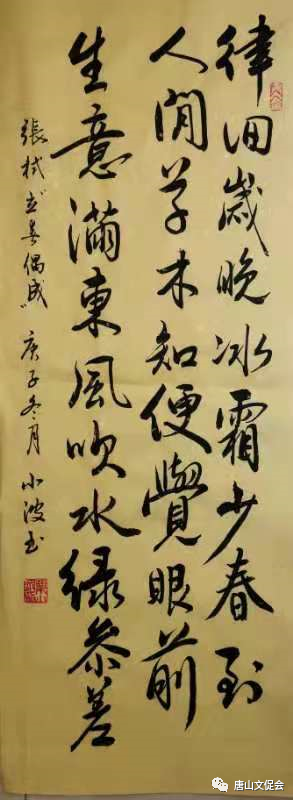 律回歲晚冰霜少春到
人間草木知便覺眼前
生意滿東風吹水綠參差
張栻立春偶成 庚子冬月 小波書
唐山文促会